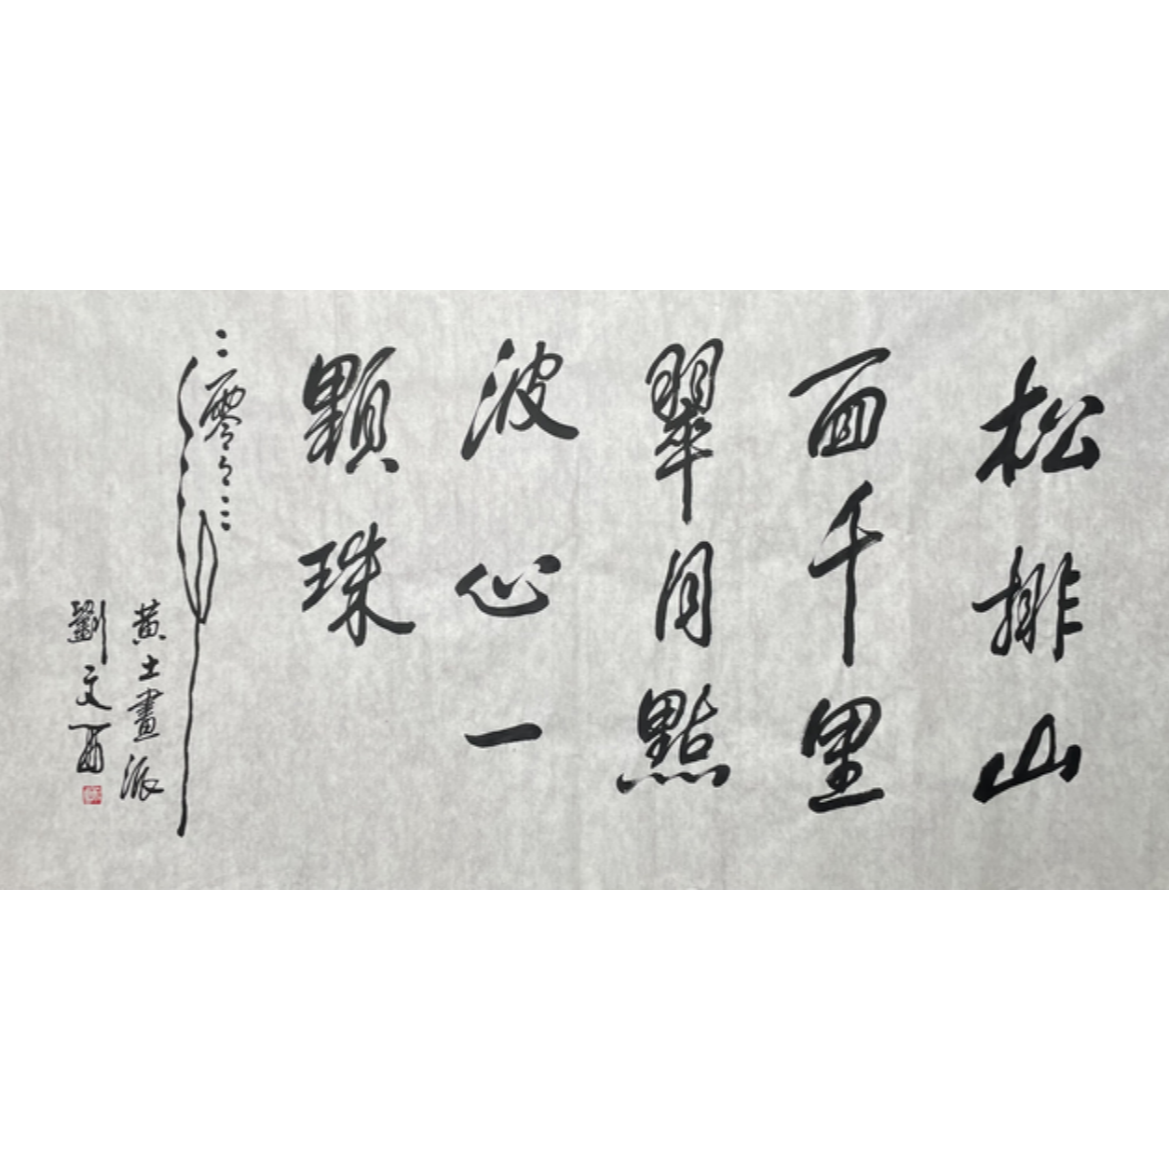 松排山
面千里
翠月點
波心一
顆珠
二零零三
黃土畫派
劉文西